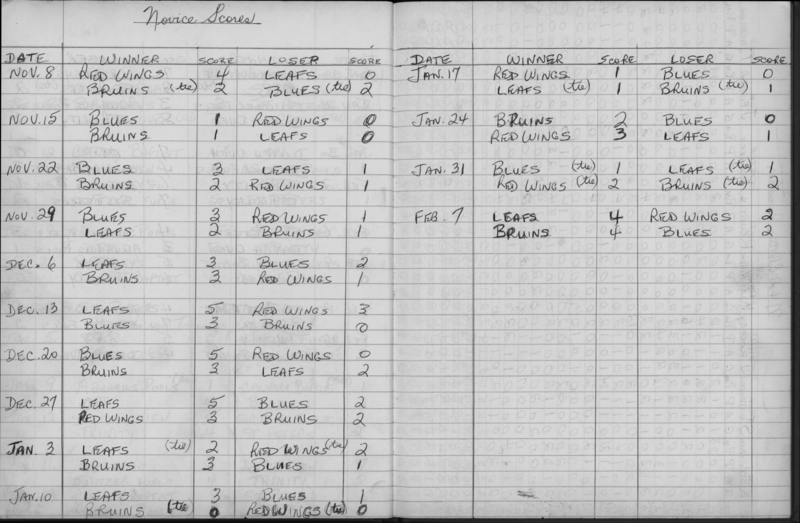 Novice Scores
DATE WINNER SCORE LOSER SCORE
NOV. 8 RED WINGS 4 LEAFS 0
BRUINS (tie) 2 BLUES (tie) 2
NOV. 15 BLUES 1 RED WINGS 0
BRUINS 1 LEAFS 0
NOV. 22 BLUES 3 LEAFS 1
BRUINS 2 RED WINGS 1
NOV. 29 BLUES 3 RED WINGS 1
LEAFS 2 BRUINS 1
DEC. 6 LEAFS 3 BLUES 2
BRUINS 3 RED WINGS 1
DEC. 13 LEAFS 5 RED WINGS 3
BLUES 3 BRUINS 0
DEC. 20 BLUES 5 RED WINGS 0
BRUINS 3 LEAFS 2
DEC. 27 LEAFS 5 BLUES 2
RED WINGS 3 BRUINS 2
JAN. 3 LEAFS (tie) 2 RED WINGS (tie) 2
BRUINS 3 BLUES 1
JAN. 10 LEAFS 3 BLUES 1
BRUINS (tie) 0 RED WINGS (tie) 0
DATE WINNER SCORE LOSER SCORE
JAN. 17 RED WINGS 1 BLUES 0
LEAFS (tie) 1 BRUINS (tie) 1
JAN. 24 BRUINS 2 BLUES 0
RED WINGS 3 LEAFS 1
JAN. 31 BLUES (tie) 1 LEAFS (tie) 1
RED WINGS (tie) 2 BRUINS (tie) 2
FEB. 7 LEAFS 4 RED WINGS 2
BRUINS 4 BLUES 2